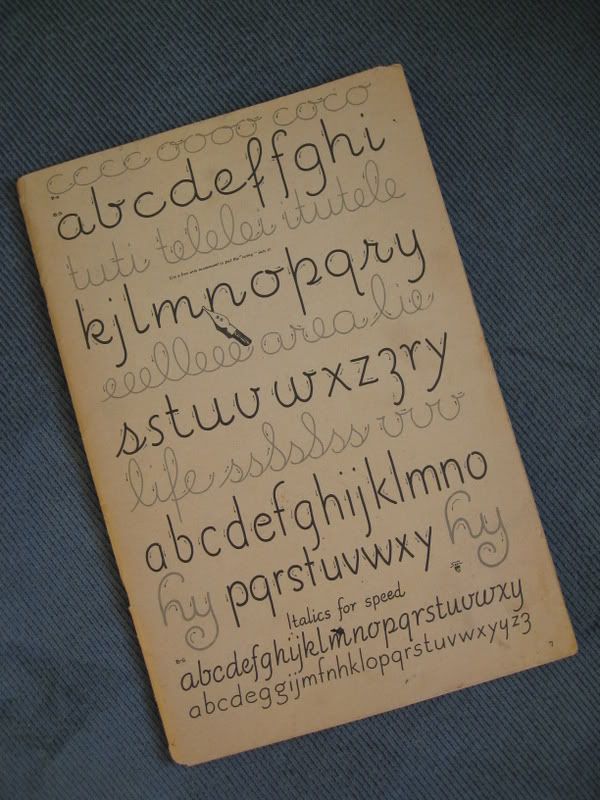 cccc oooo coco
abcdeffghi
tuti telelei itutele
kjlmnopqry
eeelleee area lie
sstuvwxzzry
life ssssssss vvv
abcdefghijklmno
hy pqrstuvwxy hy
Italics for speed
abcdefghijklmnopqrstuvwxy
abcdeggijmfnhklopqrstuvwxyyzz